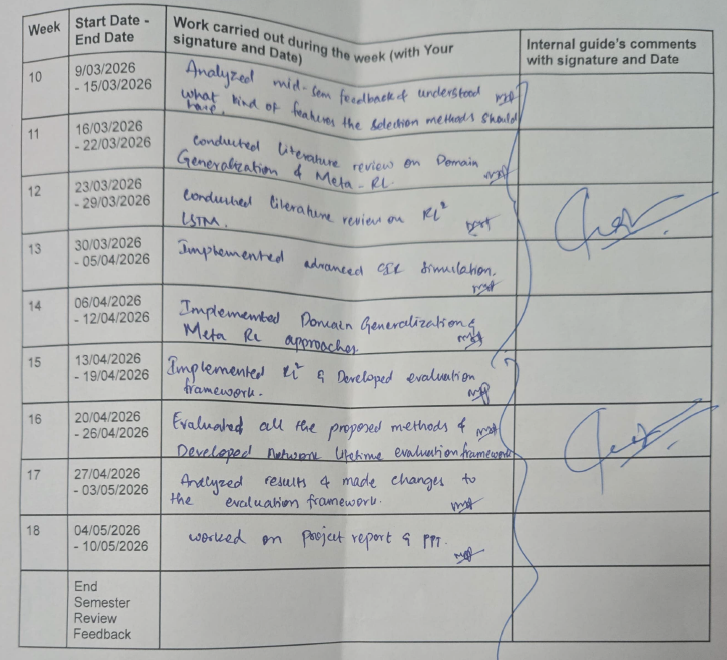 Week
Start Date -
End Date
Work carried out during the week (with Your
signature and Date)
Internal guide's comments
with signature and Date
10
9/03/2026
- 15/03/2026
Analyzed mid-sem feedback & understood
what kind of features the selection methods should
have.
11
16/03/2026
- 22/03/2026
conducted literature review on Domain
Generalization & Meta-RL.
12
23/03/2026
- 29/03/2026
conducted literature review on RL²
LSTM.
13
30/03/2026
- 05/04/2026
Implemented advanced CIR simulation.
14
06/04/2026
- 12/04/2026
Implemented Domain Generalization &
Meta RL approaches
15
13/04/2026
- 19/04/2026
Implemented RL² & Developed evaluation
framework.
16
20/04/2026
- 26/04/2026
Evaluated all the proposed methods &
Developed Network Lifetime evaluation framework
17
27/04/2026
- 03/05/2026
Analyzed results & made changes to
the evaluation framework.
18
04/05/2026
- 10/05/2026
worked on project report & PPT.
End
Semester
Review
Feedback